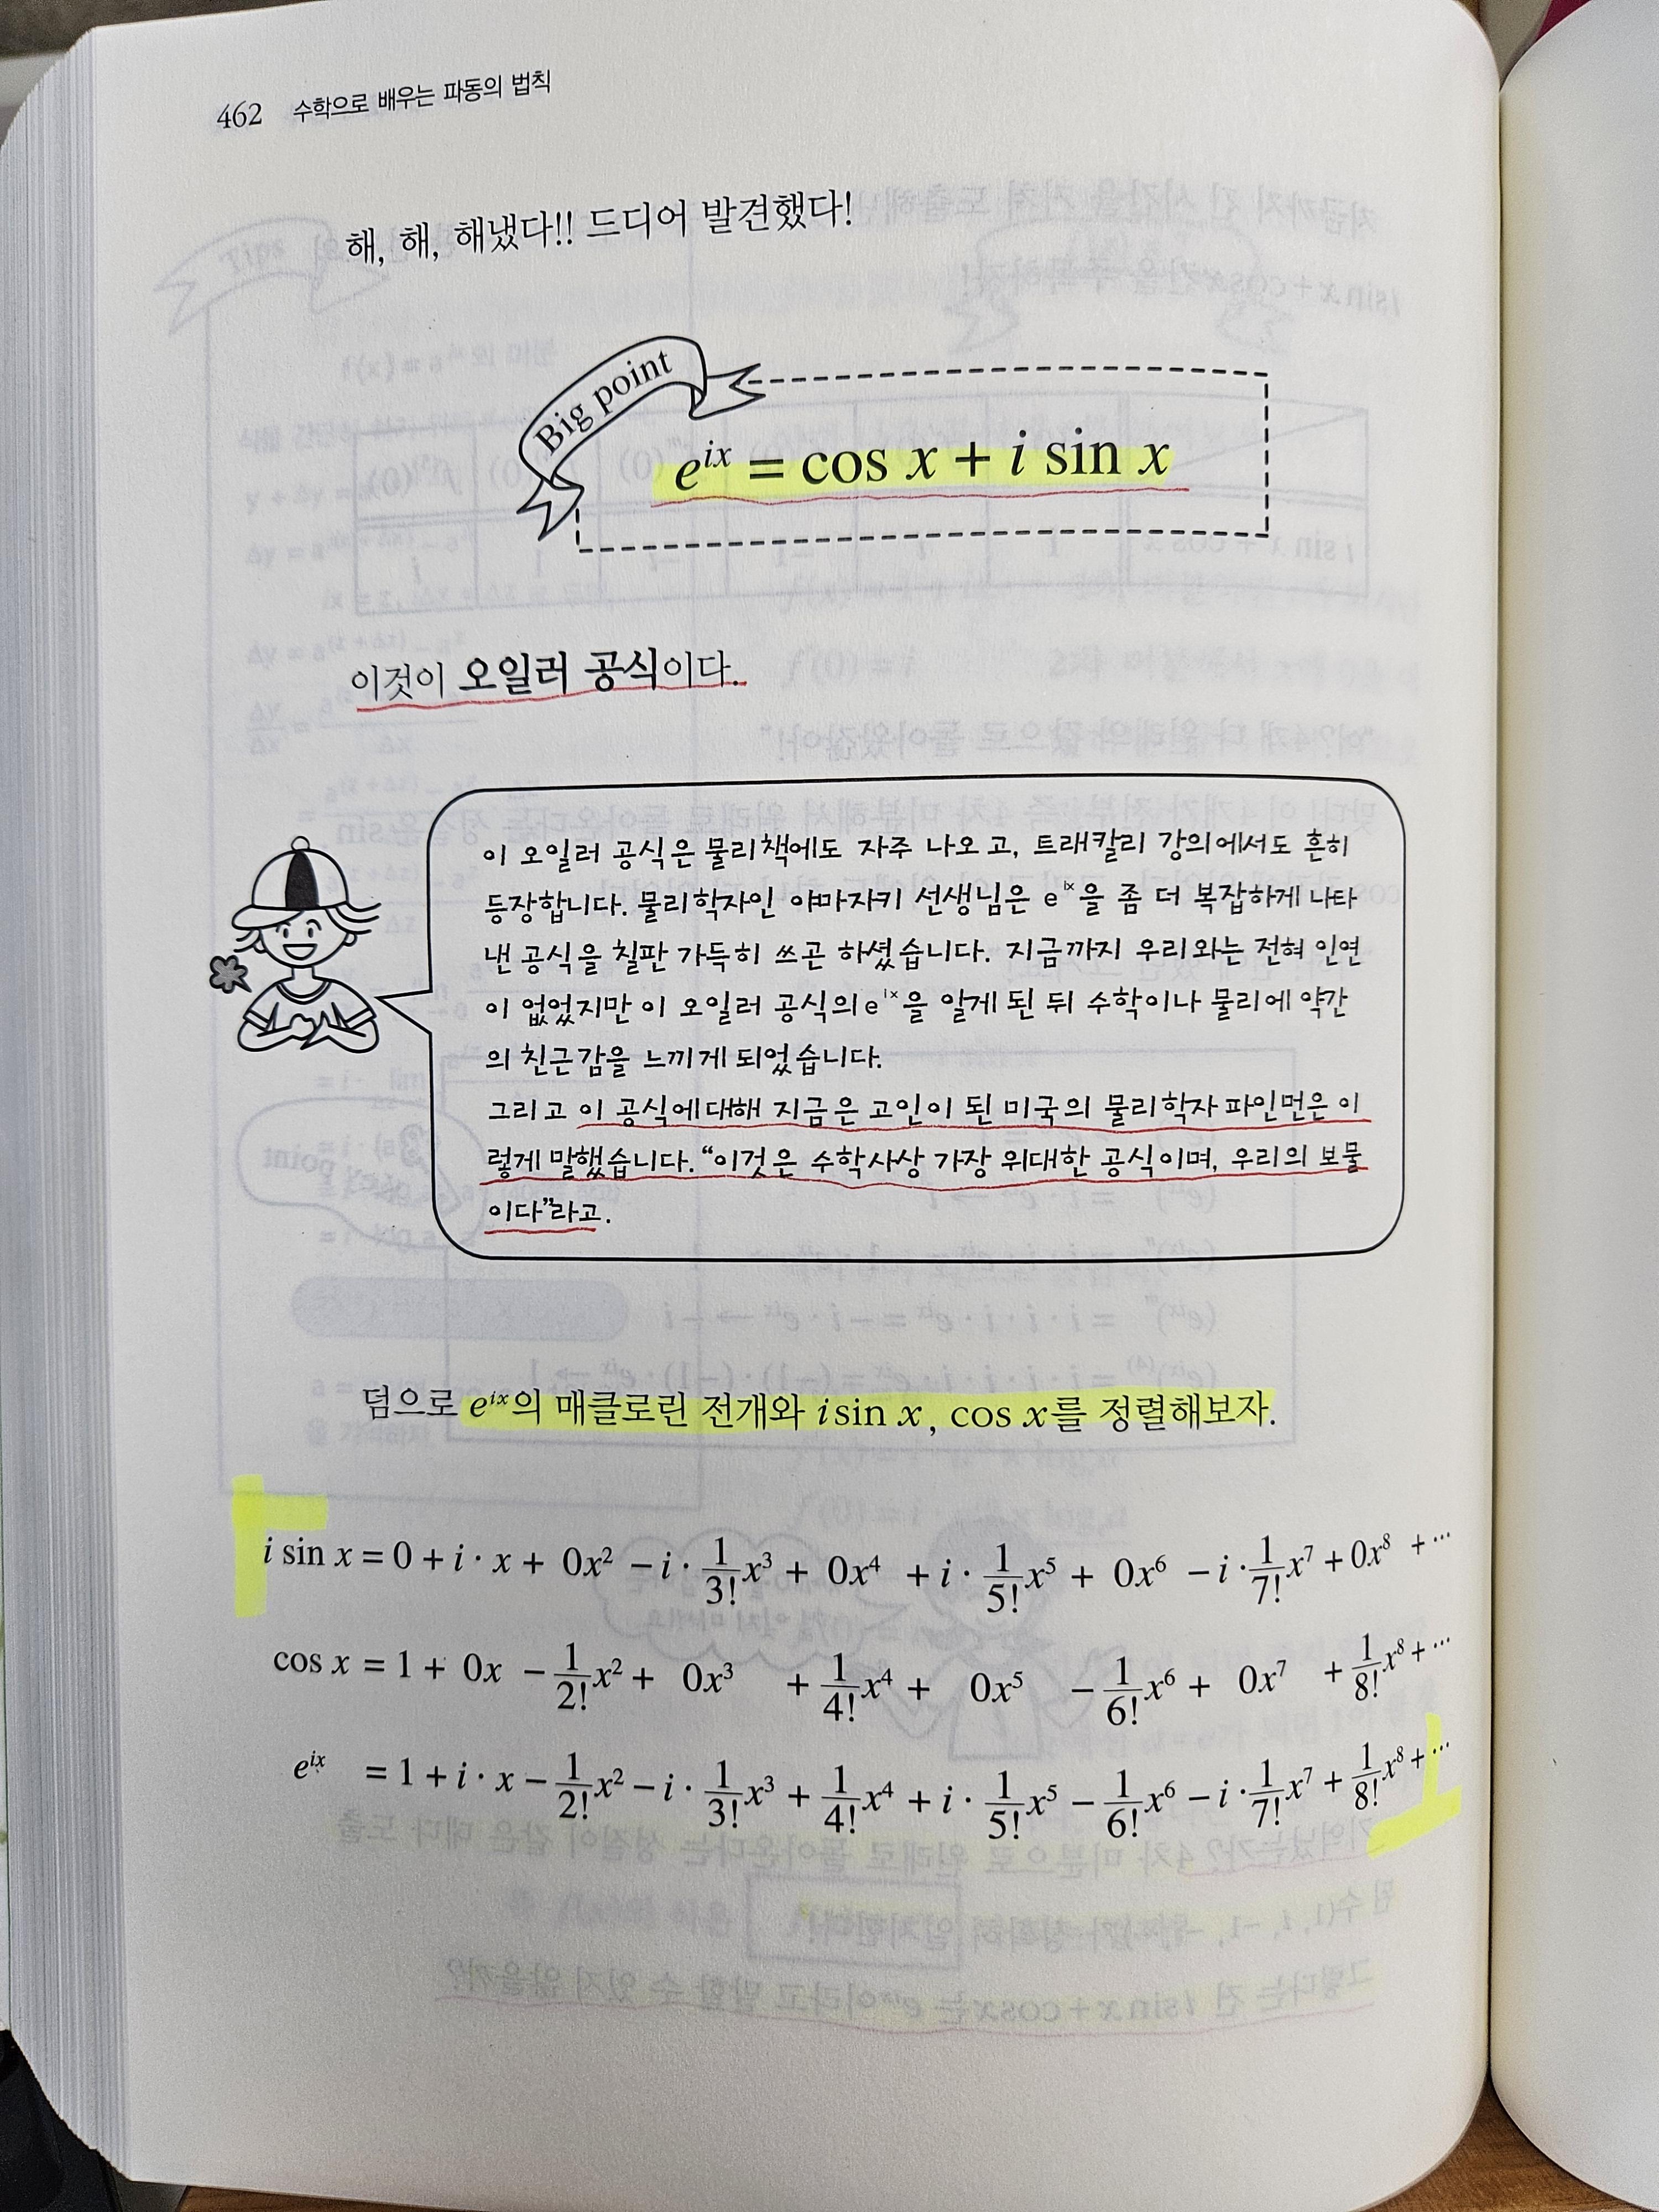 462 수학으로 배우는 파동의 법칙
해, 해, 해냈다!! 드디어 발견했다!
Big point
e^{ix} = cos x + i sin x
이것이 오일러 공식이다.
이 오일러 공식은 물리책에도 자주 나오고, 트래칼리 강의에서도 흔히
등장합니다. 물리학자인 야마자키 선생님은 e^{ix}을 좀 더 복잡하게 나타
낸 공식을 칠판 가득히 쓰곤 하셨습니다. 지금까지 우리와는 전혀 인연
이 없었지만 이 오일러 공식의 e^{ix}을 알게 된 뒤 수학이나 물리에 약간
의 친근감을 느끼게 되었습니다.
그리고 이 공식에 대해 지금은 고인이 된 미국의 물리학자 파인먼은 이
렇게 말했습니다. “이것은 수학사상 가장 위대한 공식이며, 우리의 보물
이다”라고.
덤으로 e^{ix}의 매클로린 전개와 i sin x, cos x를 정렬해보자.
i sin x = 0 + i · x + 0x² − i · 1/3! x³ + 0x⁴ + i · 1/5! x⁵ + 0x⁶ − i · 1/7! x⁷ + 0x⁸ + ···
cos x = 1 + 0x − 1/2! x² + 0x³ + 1/4! x⁴ + 0x⁵ − 1/6! x⁶ + 0x⁷ + 1/8! x⁸ + ···
e^{ix} = 1 + i · x − 1/2! x² − i · 1/3! x³ + 1/4! x⁴ + i · 1/5! x⁵ − 1/6! x⁶ − i · 1/7! x⁷ + 1/8! x⁸ + ···